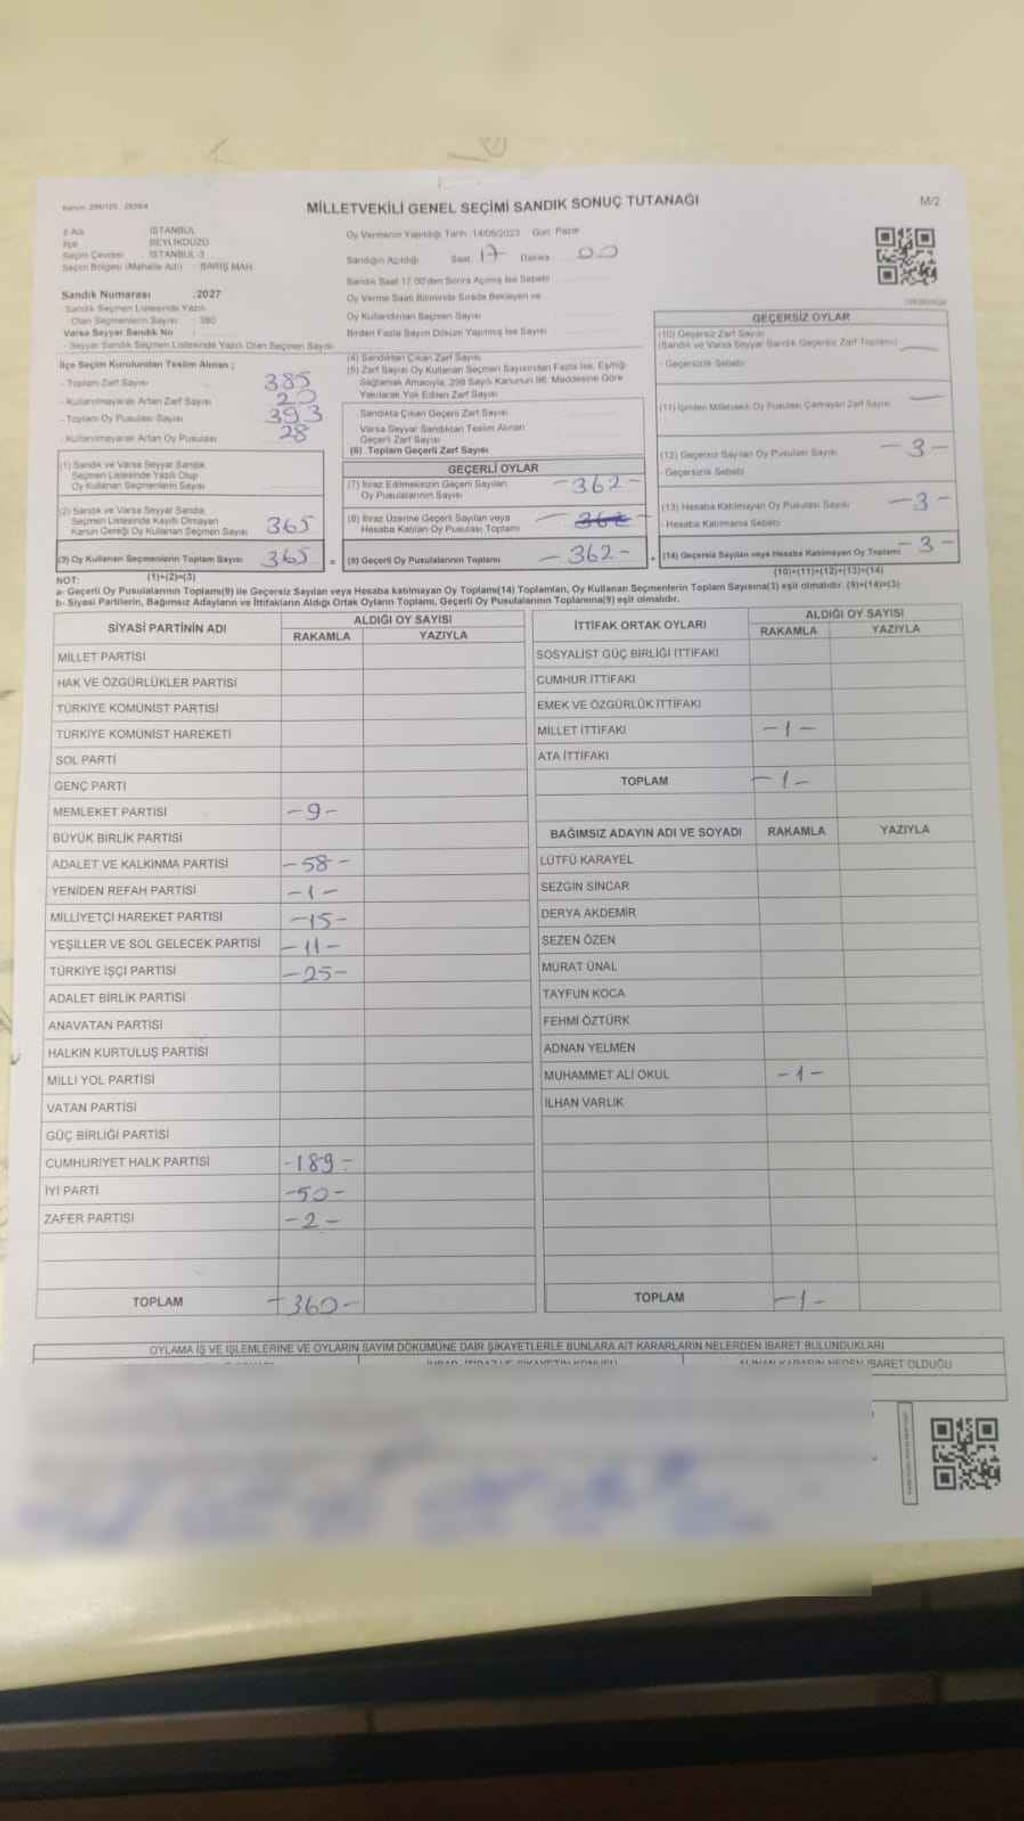 MİLLETVEKİLİ GENEL SEÇİMİ SANDIK SONUÇ TUTANAĞI
M/2
İSTANBUL
BEYLİKDÜZÜ
Seçim Çevresi İSTANBUL-3
Seçim Bölgesi (Mahalle Adı) : BARIŞ MAH.
Oy Vermenin Yapıldığı Tarih :14/05/2023 Gün: Pazar
Sandığın Açıldığı Saat 17 Dakika 00
Sandık Saat 17:00'den Sonra Açılmış İse Sebebi
Oy Verme Saati Bitiminde Sırada Bekleyen ve
Oy Kullandırılan Seçmen Sayısı
Birden Fazla Sayım Döküm Yapılmış İse Sayısı
Sandık Numarası :2027
Sandık Seçmen Listesinde Yazılı
Olan Seçmenlerin Sayısı : 380
Varsa Seyyar Sandık No
- Seyyar Sandık Seçmen Listesinde Yazılı Olan Seçmen Sayısı
İlçe Seçim Kurulundan Teslim Alınan ;
- Toplam Zarf Sayısı 385
- Kullanılmayarak Artan Zarf Sayısı 20
- Toplam Oy Pusulası Sayısı 393
- Kullanılmayarak Artan Oy Pusulası 28
(1) Sandık ve Varsa Seyyar Sandık
Seçmen Listesinde Yazılı Olup
Oy Kullanan Seçmenlerin Sayısı
(2) Sandık ve Varsa Seyyar Sandık
Seçmen Listesinde Kayıtlı Olmayan
Kanun Gereği Oy Kullanan Seçmen Sayısı 365
(3) Oy Kullanan Seçmenlerin Toplam Sayısı 365
(1)+(2)=(3)
(4) Sandıktan Çıkan Zarf Sayısı
(5) Zarf Sayısı Oy Kullanan Seçmen Sayısından Fazla İse, Eşitliği
Sağlamak Amacıyla, 298 Sayılı Kanunun 98. Maddesine Göre
Yakılarak Yok Edilen Zarf Sayısı
Sandıkta Çıkan Geçerli Zarf Sayısı
Varsa Seyyar Sandıktan Teslim Alınan
Geçerli Zarf Sayısı
(6) Toplam Geçerli Zarf Sayısı
GEÇERLİ OYLAR
(7) İtiraz Edilmeksizin Geçerli Sayılan
Oy Pusulalarının Sayısı -362-
(8) İtiraz Üzerine Geçerli Sayılan veya
Hesaba Katılan Oy Pusulası Toplamı - 362 -
(9) Geçerli Oy Pusulalarının Toplamı - 362 -
GEÇERSİZ OYLAR
(10) Geçersiz Zarf Sayısı
(Sandık ve Varsa Seyyar Sandık Geçersiz Zarf Toplamı) -
- Geçersizlik Sebebi
(11) İçinden Milletvekili Oy Pusulası Çıkmayan Zarf Sayısı -
(12) Geçersiz Sayılan Oy Pusulası Sayısı - 3 -
- Geçersizlik Sebebi
(13) Hesaba Katılmayan Oy Pusulası Sayısı - 3 -
- Hesaba Katılmama Sebebi
(14) Geçersiz Sayılan veya Hesaba Katılmayan Oy Toplamı - 3 -
(10)+(11)+(12)+(13)=(14)
NOT:
a- Geçerli Oy Pusulalarının Toplamı(9) ile Geçersiz Sayılan veya Hesaba katılmayan Oy Toplamı(14) Toplamları, Oy Kullanan Seçmenlerin Toplam Sayısına(3) eşit olmalıdır. (9)+(14)=(3)
b- Siyasi Partilerin, Bağımsız Adayların ve İttifakların Aldığı Ortak Oyların Toplamı, Geçerli Oy Pusulalarının Toplamına(9) eşit olmalıdır.
SİYASİ PARTİNİN ADI
ALDIĞI OY SAYISI
RAKAMLA YAZIYLA
MİLLET PARTİSİ
HAK VE ÖZGÜRLÜKLER PARTİSİ
TÜRKİYE KOMÜNİST PARTİSİ
TÜRKİYE KOMÜNİST HAREKETİ
SOL PARTİ
GENÇ PARTİ
MEMLEKET PARTİSİ -9-
BÜYÜK BİRLİK PARTİSİ
ADALET VE KALKINMA PARTİSİ -58-
YENİDEN REFAH PARTİSİ -1-
MİLLİYETÇİ HAREKET PARTİSİ -15-
YEŞİLLER VE SOL GELECEK PARTİSİ -11-
TÜRKİYE İŞÇİ PARTİSİ -25-
ADALET BİRLİK PARTİSİ
ANAVATAN PARTİSİ
HALKIN KURTULUŞ PARTİSİ
MİLLİ YOL PARTİSİ
VATAN PARTİSİ
GÜÇ BİRLİĞİ PARTİSİ
CUMHURİYET HALK PARTİSİ -189-
İYİ PARTİ -50-
ZAFER PARTİSİ -2-
TOPLAM -360-
İTTİFAK ORTAK OYLARI
ALDIĞI OY SAYISI
RAKAMLA YAZIYLA
SOSYALİST GÜÇ BİRLİĞİ İTTİFAKI
CUMHUR İTTİFAKI
EMEK VE ÖZGÜRLÜK İTTİFAKI
MİLLET İTTİFAKI -1-
ATA İTTİFAKI
TOPLAM -1-
BAĞIMSIZ ADAYIN ADI VE SOYADI RAKAMLA YAZIYLA
LÜTFÜ KARAYEL
SEZGİN SİNCAR
DERYA AKDEMİR
SEZEN ÖZEN
MURAT ÜNAL
TAYFUN KOCA
FEHMİ ÖZTÜRK
ADNAN YELMEN
MUHAMMET ALİ OKUL -1-
İLHAN VARLIK
TOPLAM -1-
OYLAMA İŞ VE İŞLEMLERİNE VE OYLARIN SAYIM DÖKÜMÜNE DAİR ŞİKAYETLERLE BUNLARA AİT KARARLARIN NELERDEN İBARET BULUNDUKLARI
İHBAR, İTİRAZ VE ŞİKAYETİN KONUSU
ALINAN KARARIN NEDEN İBARET OLDUĞU